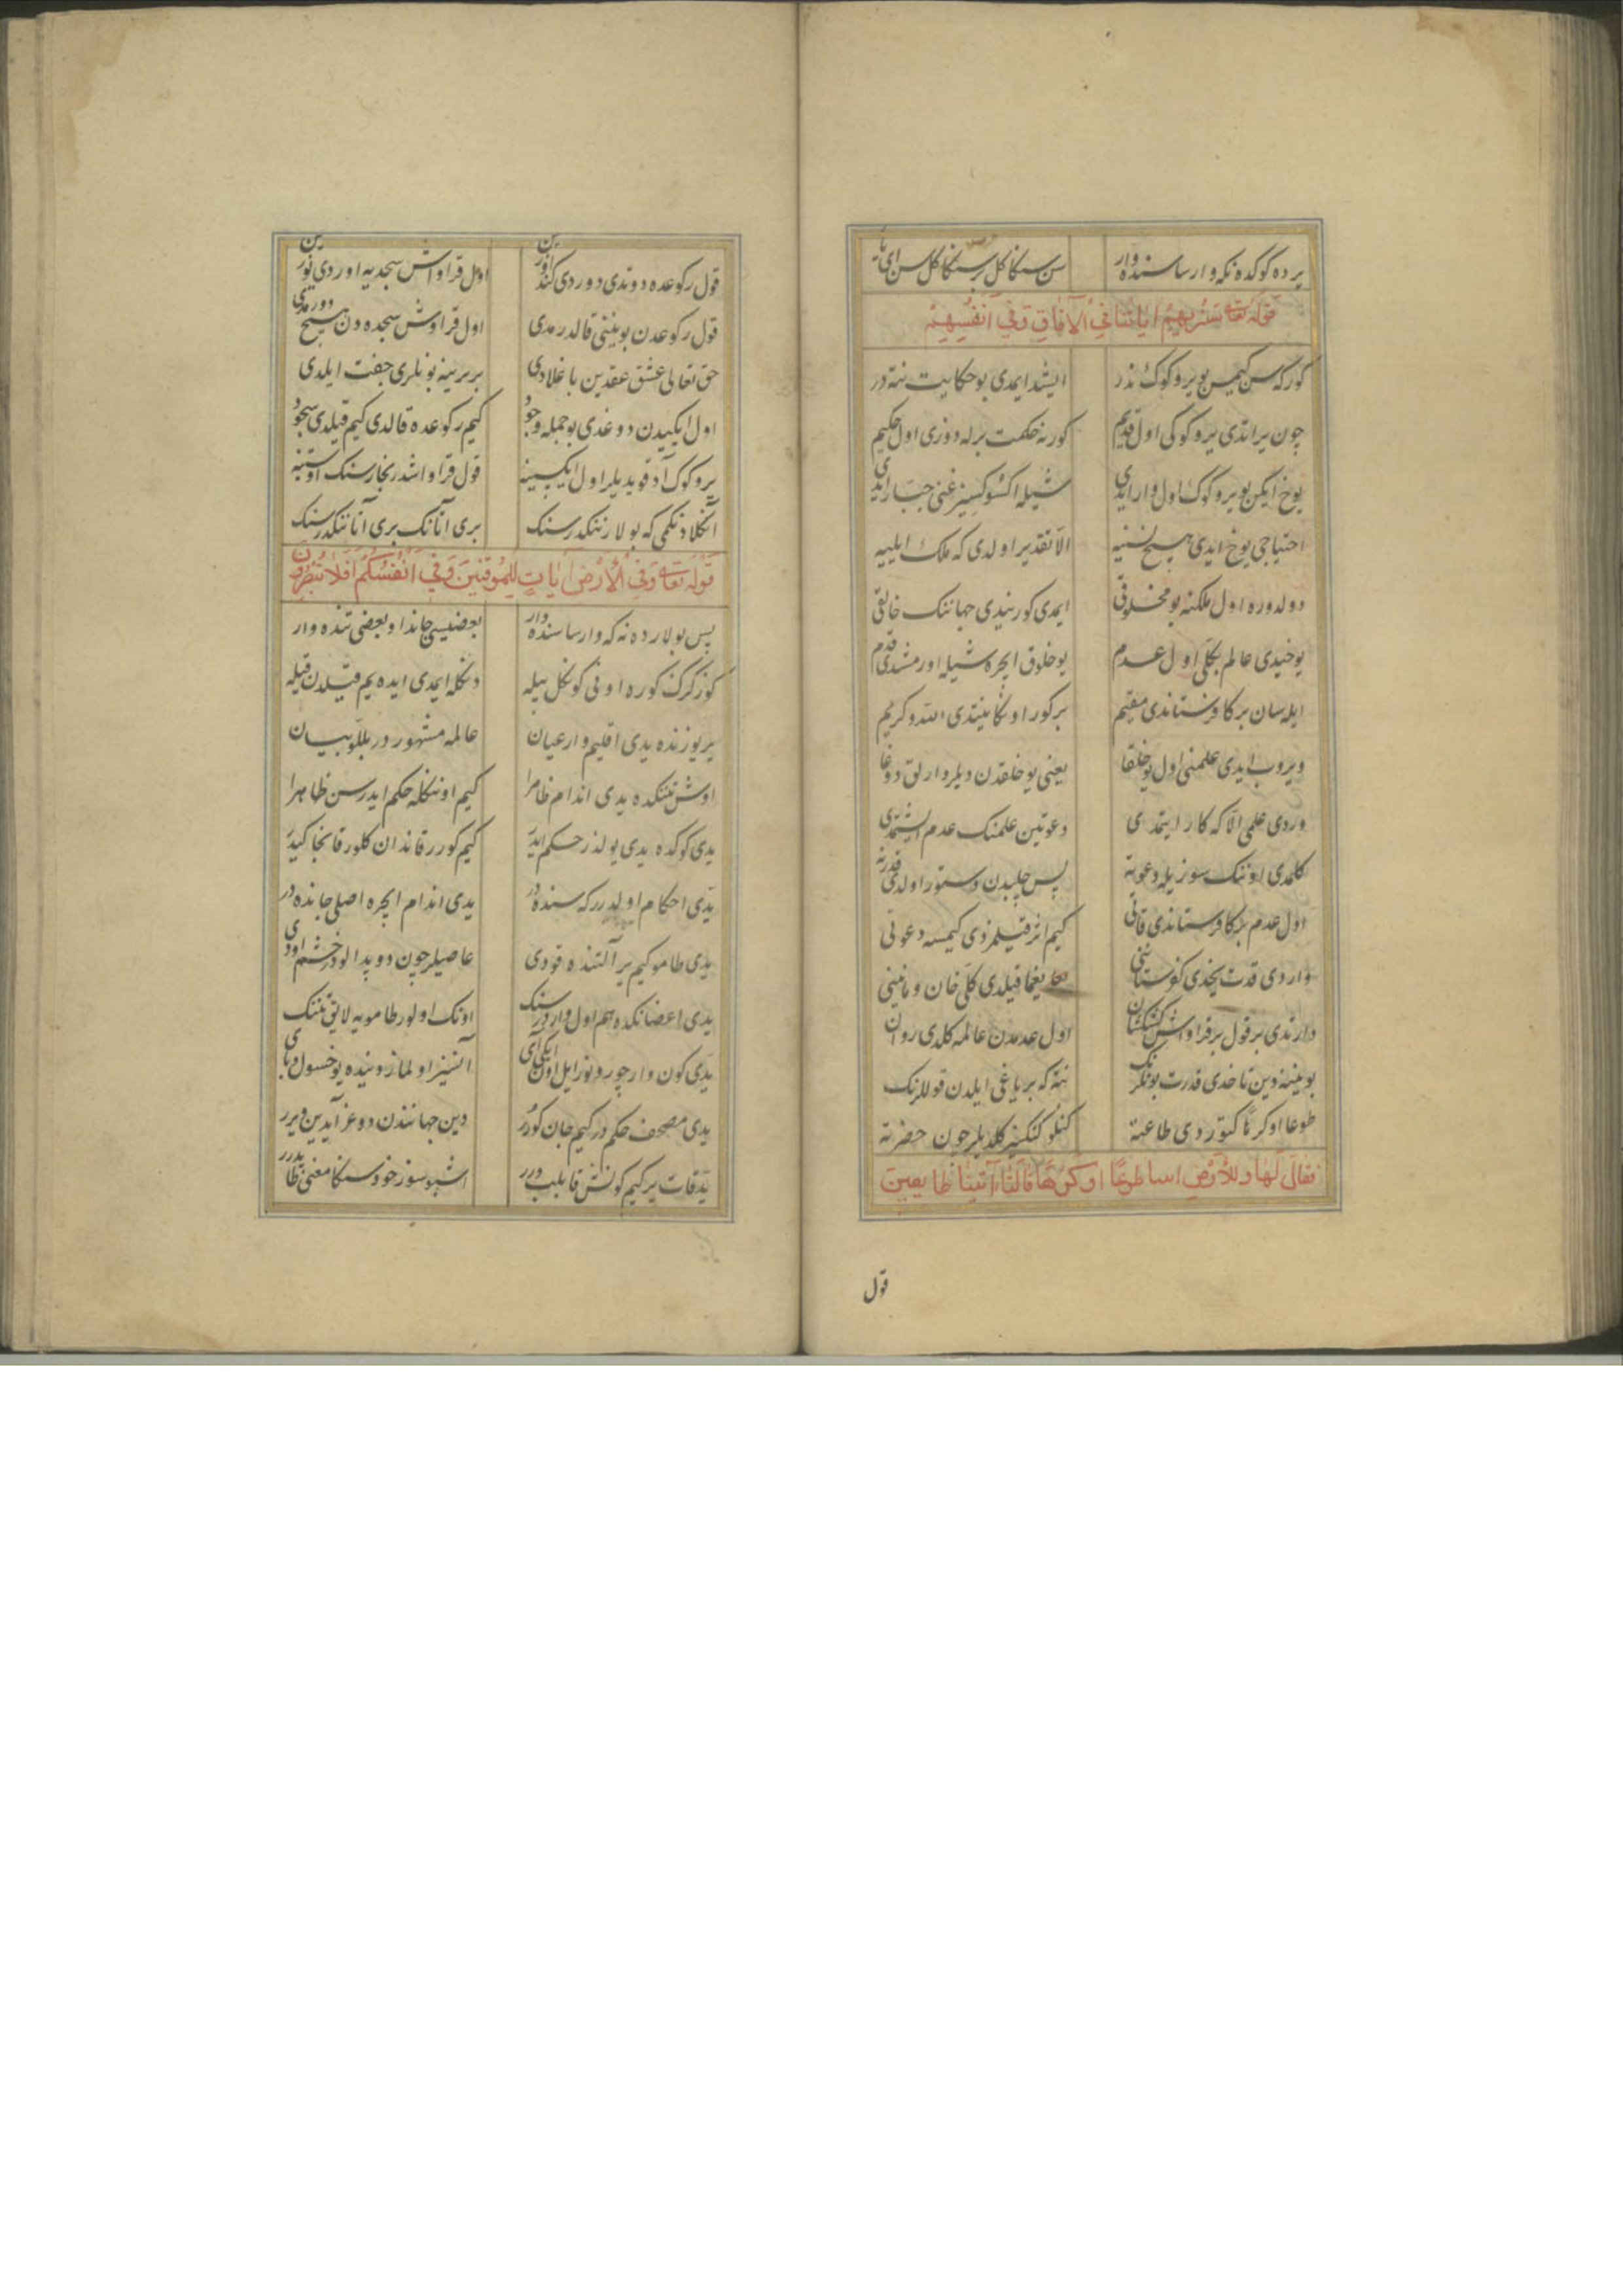 یرده کوکده نکه وارسا سنده وار سن سنکا کل سنکا کل سن ای یار
قوله تعا سنریهم ایاتنا فی الآفاق وفی انفسهم
کورکه سن کیمسن بو یر و کوک ندر ایشد ایمدی بو حکایت نته در
چون یراتدی یر و کوکی اول قدیم کور نه حکمت برله دوزدی اول حکیم
یوخ ایکن بو یر و کوک اول وار ایدی شیله اکسوکسیز غنی جبار ایدی
احتیاجی یوخ ایدی هیچ نسنیه الا تقدیر اولدی که ملک ایلییه
دولدوره اول ملکنه بو مخلوقی ایمدی کور نیدی جهاننک خالقی
یوخیدی عالم بکلی اول عدم یوخلوق ایچره شیله اورمشدی قدم
ایله سان بر کافرستاندی مقیم بر کور اونکا نیتدی الله و کریم
ویروب ایدی علمنی اول یوخلقا یعنی یوخلقدن دیلر وارلق دوغا
وردی علمی الا که کار ایتمدی دعوتین علمنک عدم ایشتمدی
کلمدی اوننک سوزیله دعوته پس چلبدن دستور اولدی قدرته
اول عدم بر کافرستاندی قاتی کیم اثر قیلمزدی کیمسه دعوتی
واردی قدرت یخدی کفرستاننی یغما قیلدی کلی خان و ماننی
دارتدی بر قول بر قراواش کشکشان اول عدمدن عالمه کلدی روان
بوینینه دین تاخدی قدرت بونلرنک نته که بر یاغی ایلدن قوللرنک
طوعا او کرها کتوردی طاعته کنلو کنکسز کلدیلر چون حضرته
فقال لها وللأرض اساطوعًا او کرهًا قالتا آتینا طایعین
قول
قول رکوعده دوتدی دوردی کندوزین اول قراواش سجدیه اوردی یوزین
قول رکوعدن بویننی قالدرمدی اول قراوش سجده دن هیچ دورمدی
حق تعالی عشق عقدین باغلادی بر برینه بونلری جفت ایلدی
اول ایکیدن دوغدی بو جمله وجود کیم رکوعده قالدی کیم قیلدی سجود
یر و کوک آد قویدیلر اول ایکیسینه قول قراواشدر بخارسنک اوستنه
آنکلادنکمی که بولار ننکدر سنک بری آنانک بری آتاننکدر سنک
قوله تعا وفی الأرض ایات للموقنین وفی انفسکم افلا تبصرون
پس بولارده نه که وارسا سنده وار بعضیسی جاندا و بعضی تنده وار
کوز کرک کوره اونی کونکل بیله دنکله ایمدی ایده یم قیلدن قیله
یر یوزنده یدی اقلیم وار عیان عالمه مشهور در بللو بیان
اوش تننکده یدی اندام ظاهرا کیم اوننکله حکم ایدرسن ظاهرا
یدی کوکده یدی یولدز حکم ایدر کیم کورر قاندان کلور قانجا کیدر
یدی احکام اولدرر که سنده در یدی اندام ایچره اصلی جانده در
یدی طامو کیم یر آلتنده قودی عاصیلر چون دوپدالو در خشم اودی
یدی اعضانکده هم اول واردر سنک اونک اولور طامویه لایق تننک
یدی کون وار چورونور ایل اون ایکی آی آنسیز اولماز دنیده یوخسول و بای
یدی مصحف حکم در کیم جان کورر دین جهانندن دوغر آیدین ویرر
یدقات یر کیم کونش قابلب درر اشبو سوز خود سنکا معنی طایدرر